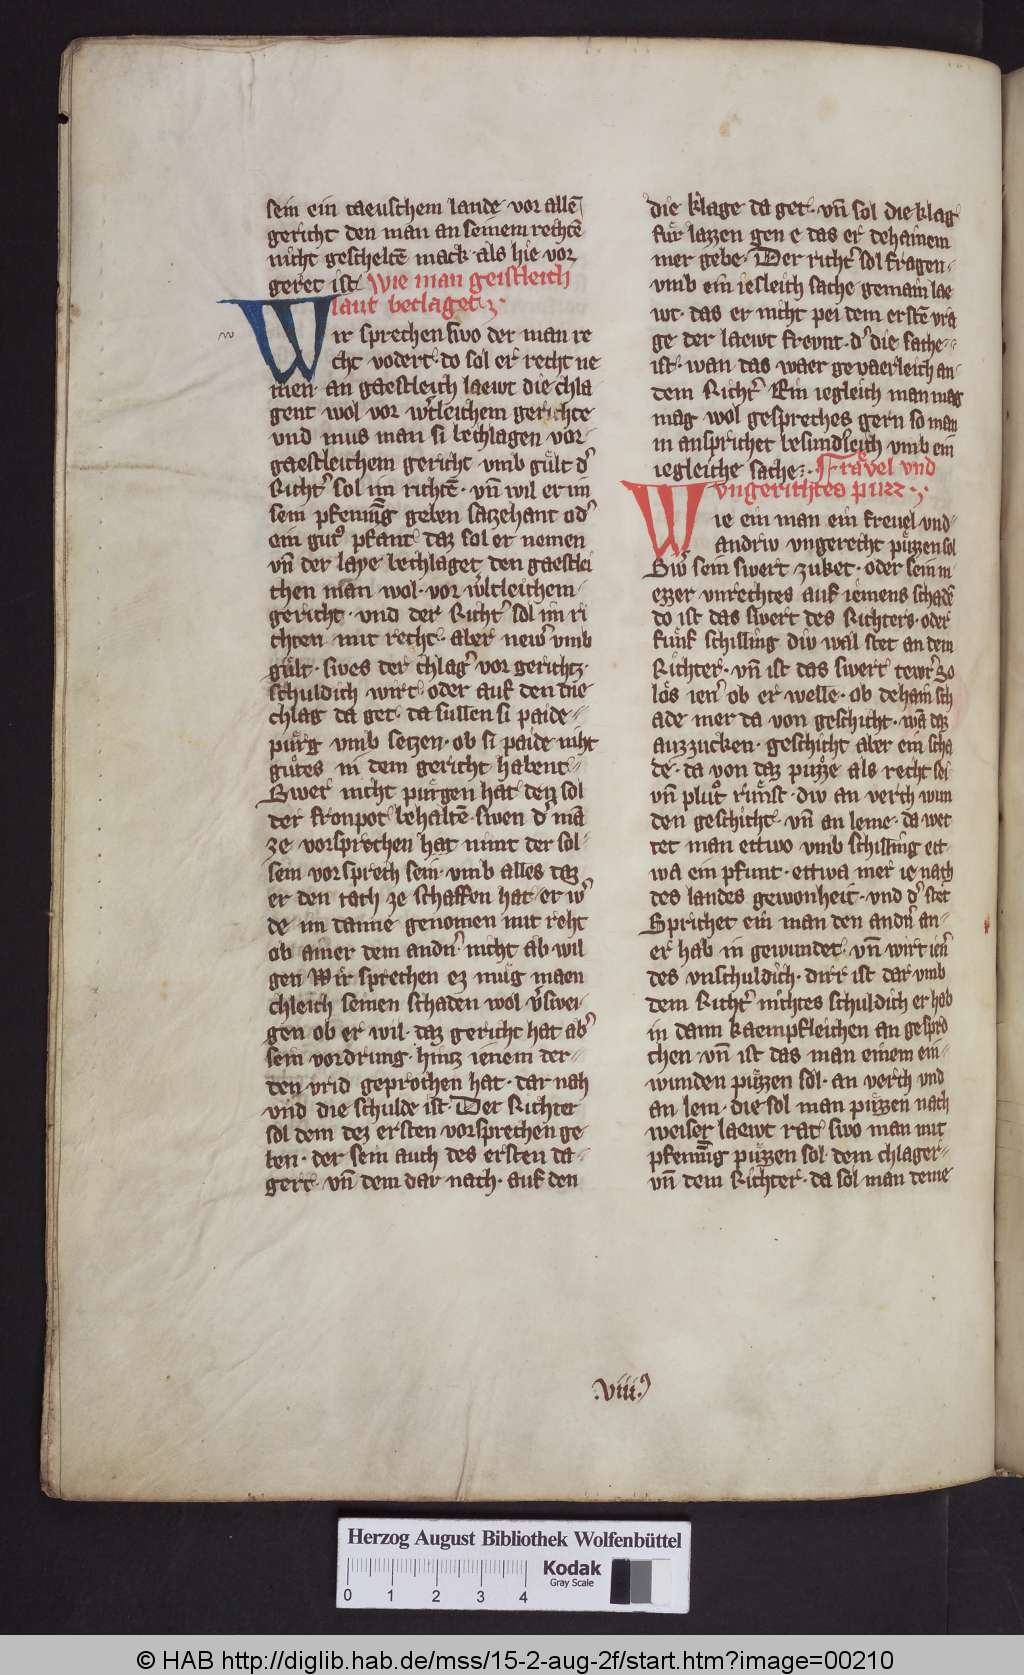 sein ein taeutschem lande vor allē
gericht den man an seinem rechtē
nicht gescheltē mack als hie vor
geret ist wie man geistleich
laut beclaget
Wir sprechen swo der man re
cht vodert do sol er recht ne
men an gaestleich laewt die chla
gent wol vor wͬtleichem gerichte
vnd mus man si bechlagen vor
gaestleichem gericht vmb guͤlt dͬ
Richtͬ sol im richtē vn̄ wil er im
sein pfenning geben satzehant odͬ
ein gutꝰ pfant daz sol er nemen
vn̄ der laye bechlaget den gaestlei
chen man wol vor wͬltleichem
gericht vnd der Richtͬ sol im ri
chten mit recht aber newͬ vmb
guͤlt swes der chlagͬ vor gerichtz
schuldich wirt oder auf den die
chlag da get da sullen si paide
puͤrg vmb setzen ob si paide niht
guͦtes in dem gericht habent
Swer nicht puͤrgen hat den sol
der fronpot behaltē swen dͬ mā
ze vorsprechen hat nimt der sol
sein vorsprech sein vmb alles daz
er den tach ze schaffen hat er wͬ
de im danne genomen mit reht
ob ainer dem andͬn nicht ab wil
gen Wir sprechen ez mug maen
chleich seinen schaden wol vͬswei
gen ob er wil daz gericht hat abͬ
sein vordrung hintz ienem der
den vrid geprochen hat dar nah
vnd die schulde ist Der Richter
sol dem dez ersten vorsprechen ge
ben der sein auch des ersten da
gert vn̄ dem dar nach auf den
die klage da get vn̄ sol die klag
fuͤr lazzen gen e das er dehainem
mer gebe Der richtͬ sol fragen
vmb ein iesleich sache gemain lae
wt das er nicht pei dem erstē vra
ge der laewt frevnt dͬ die sache
ist wan das waer gevaerleich an
dem Richtͬ Ein iegleich man mag
mag wol gespreches gern so man
in ansprichet besundleich vmb ein
iegleiche sache Fraͤvel vnd
vngerichtes puzz
Wie ein man ein frevel vnd
andriv vngerecht puͤzzen sol
Swͬ sein swert zuket oder sein m
ezzer vnrechtes auf iemens schadē
do ist das swert des Richters oder
fuͤnf schilling div wal stet an dem
Richter vn̄ ist das swert tewͬ so
loͤs ienͬ ob er welle ob dehain sch
ade mer da von geschicht wā daz
auzzucken geschicht aber ein scha
de da von daz puzze als recht sei
vn̄ plutͦ ruͤnst div an verch wun
den geschicht vn̄ an leme da wet
tet man ettwo vmb schilling ett
wa ein pfunt ettwa mer ie nach
des landes gewonheit vnd dͬ stet
Sprichet ein man den andͬn an
er hab in gewundet vn̄ wirt ienͬ
des vnschuldich dirr ist dar vmb
dem Richtͬ nichtes schuldich er hab
in dann kaempfleichen an gespro
chen vn̄ ist das man einem ein
wunden puͤzzen sol an verch vnd
an lem die sol man puͤzzen nach
weiser laewt rat swo man mit
pfenning puͤzzen sol dem chlager
vn̄ dem Richter da sol man deme
.viii.ꝰ
Herzog August Bibliothek Wolfenbüttel
0 1 2 3 4
Kodak
Gray Scale
© HAB http://diglib.hab.de/mss/15-2-aug-2f/start.htm?image=00210